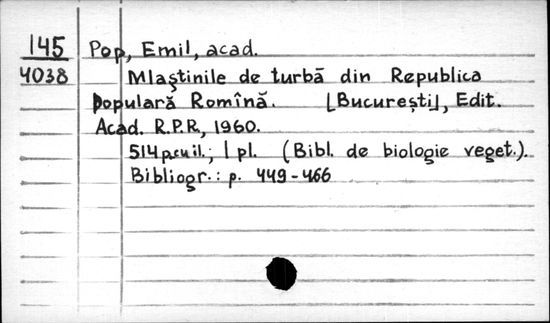 145 Pop, Emil, acad.
4038 Mlaştinile de turbă din Republica
Populară Romînă. [Bucureşti], Edit.
Acad. R.P.R, 1960.
514 p. cu il.; 1 pl. (Bibl. de biologie veget.).
Bibliogr.: p. 449-466